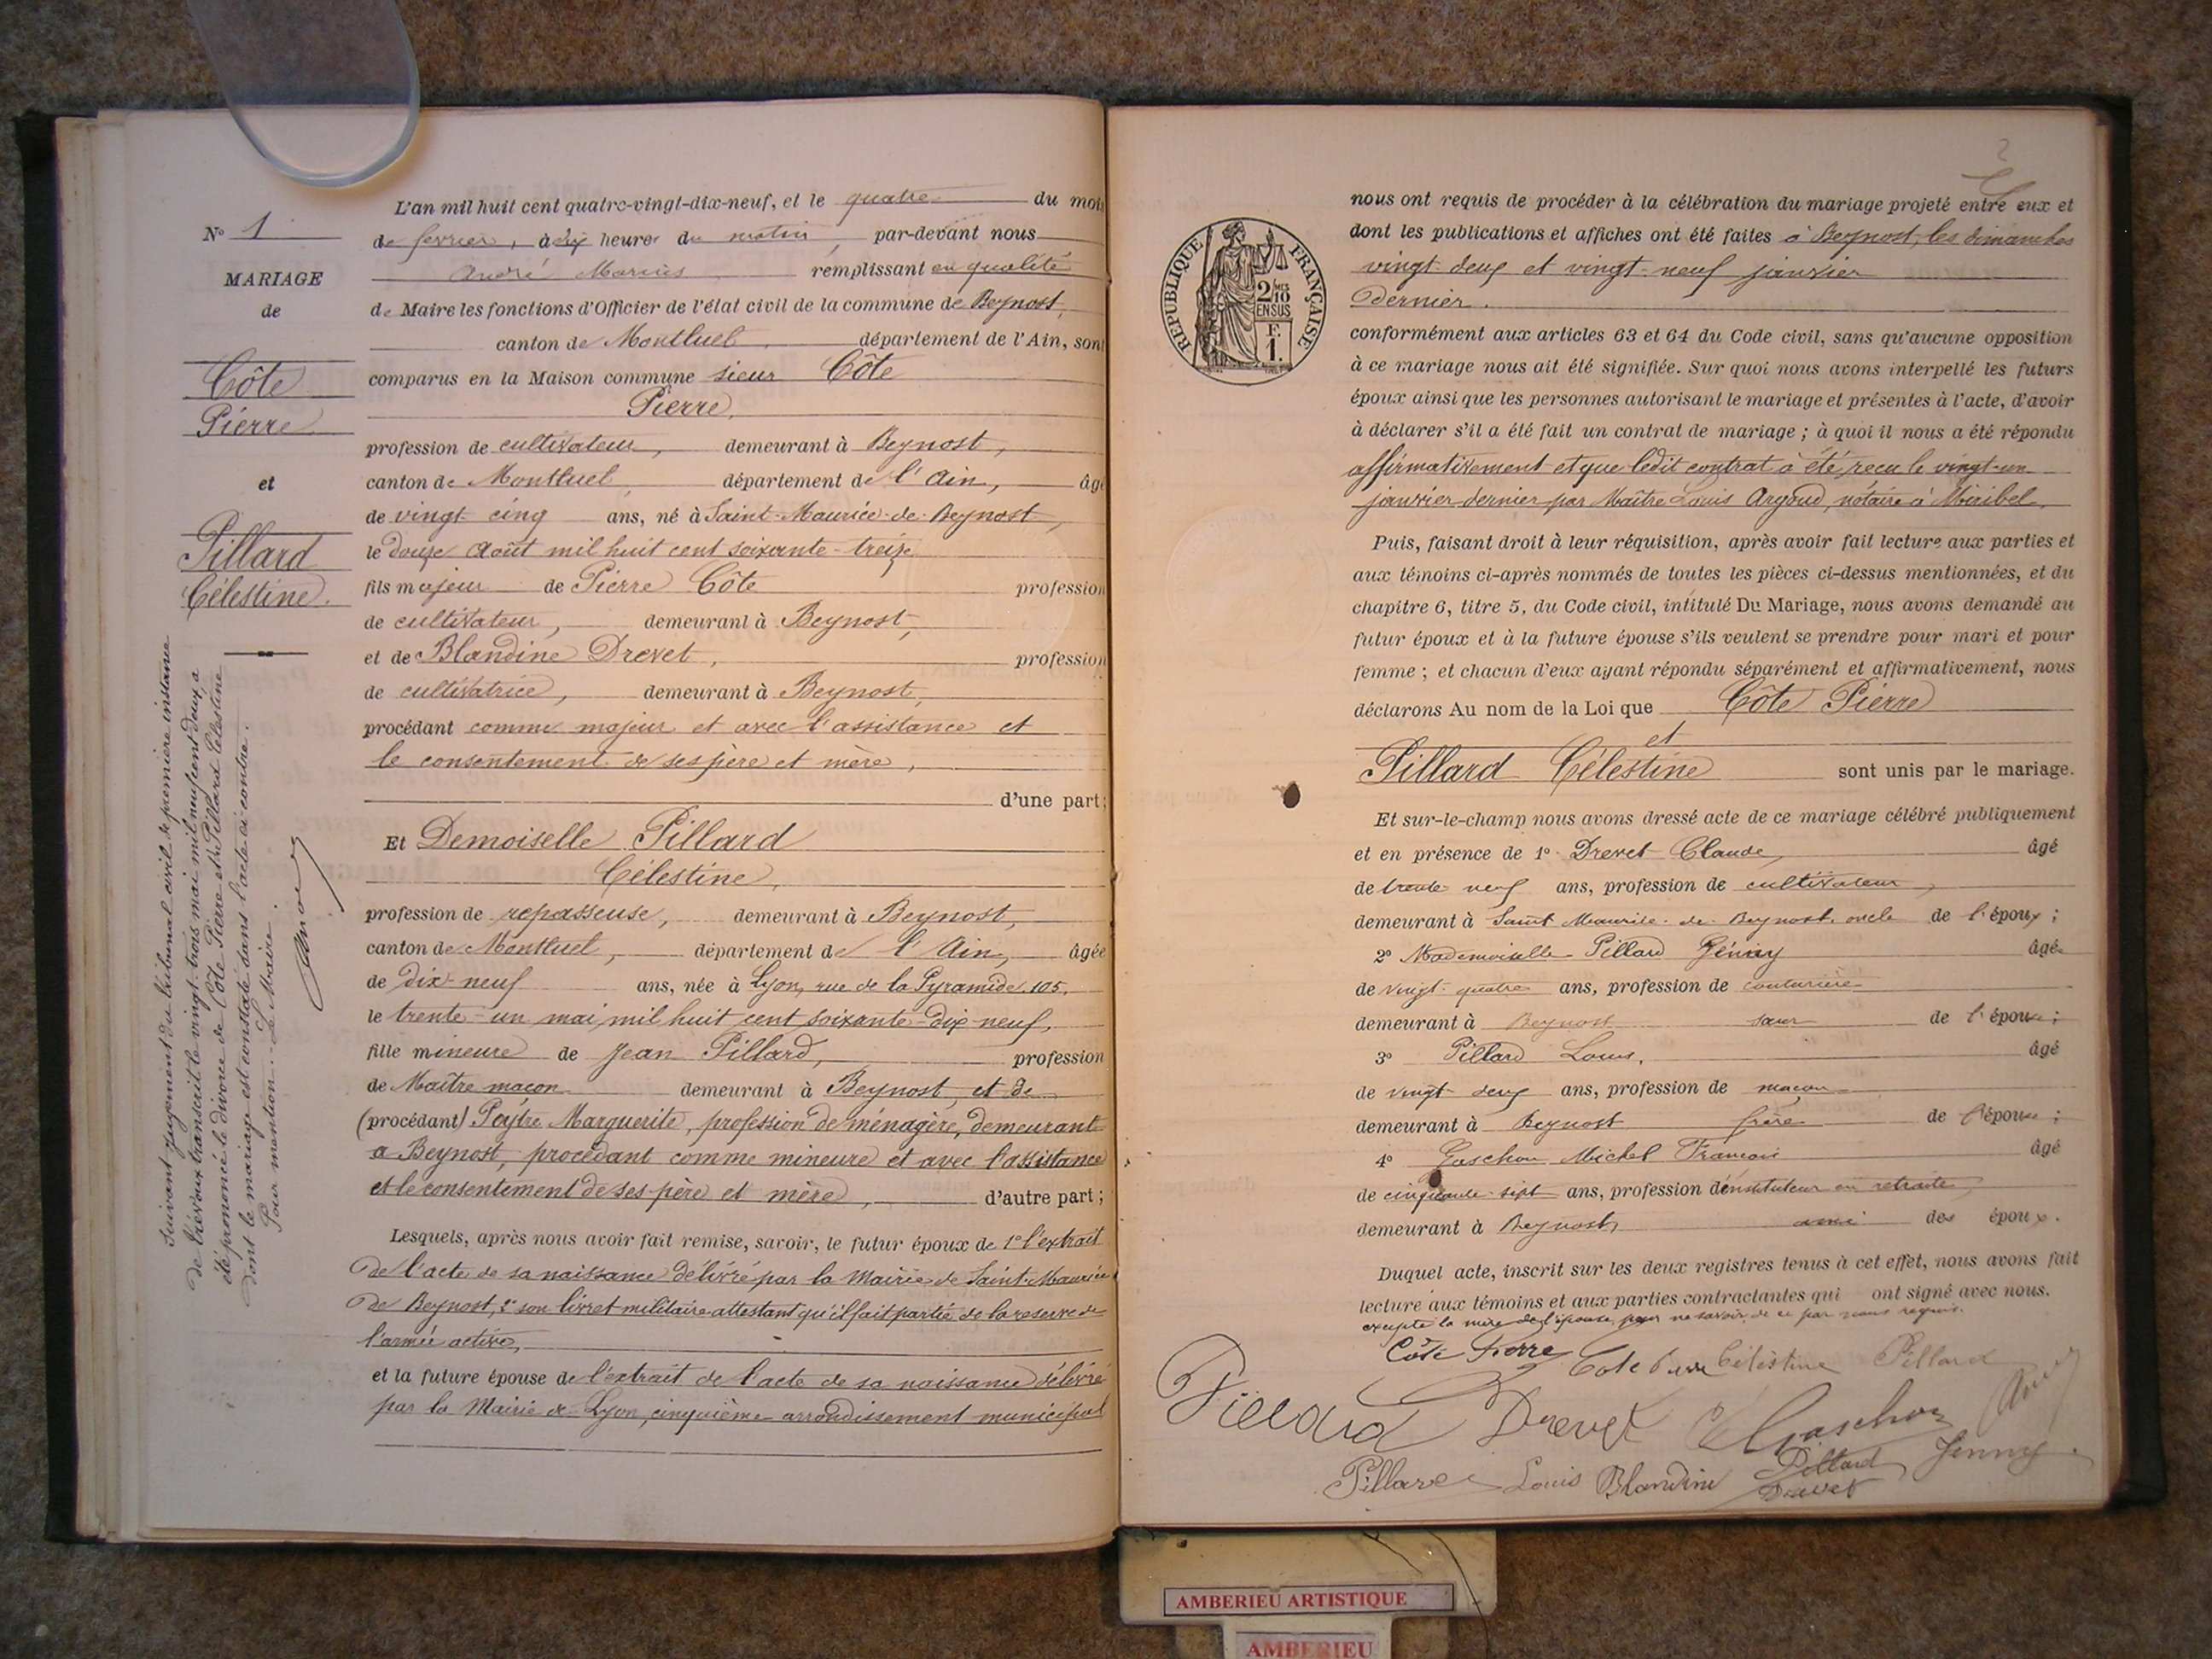 N° 1
MARIAGE
de
Côte
Pierre
et
Pillard
Célestine.
Suivant jugement du tribunal civil de première instance
de Trévoux transcrit le vingt-trois mai mil neuf cent deux, a
été prononcé le divorce de Côte Pierre et de Pillard Célestine
dont le mariage est constaté dans l'acte ci-contre.
Pour mention. Le Maire.
L'an mil huit cent quatre-vingt-dix-neuf, et le quatre du mois
de fevrier, à dix heures du matin, par-devant nous
André Marius remplissant en qualité
de Maire les fonctions d'Officier de l'état civil de la commune de Beynost,
canton de Montluel, département de l'Ain, sont
comparus en la Maison commune sieur Côte
Pierre,
profession de cultivateur, demeurant à Beynost,
canton de Montluel, département de l'Ain, âgé
de vingt cinq ans, né à Saint-Maurice-de-Beynost,
le douze août mil huit cent soixante-treize
fils majeur de Pierre Côte profession
de cultivateur, demeurant à Beynost,
et de Blandine Drevet, profession
de cultivatrice, demeurant à Beynost,
procédant comme majeur et avec l'assistance et
le consentement de ses père et mère,
d'une part;
Et Demoiselle Pillard
Célestine,
profession de repasseuse, demeurant à Beynost,
canton de Montluel, département de l'Ain, âgée
de dix-neuf ans, née à Lyon, rue de la Pyramide 105,
le trente-un mai mil huit cent soixante-dix-neuf,
fille mineure de Jean Pillard, profession
de Maître maçon demeurant à Beynost, et de
(procédant) Peytre Marguerite, profession de ménagère, demeurant
a Beynost, procédant comme mineure et avec l'assistance
et le consentement de ses père et mère, d'autre part;
Lesquels, après nous avoir fait remise, savoir, le futur époux de 1° l'extrait
de l'acte de sa naissance délivré par la Mairie de Saint-Maurice
de Beynost, 2° son livret militaire attestant qu'il fait partie de la reserve de
l'armée active,
et la future épouse de l'extrait de l'acte de sa naissance délivré
par la Mairie de Lyon, cinquième arrondissement municipal
2
RÉPUBLIQUE FRANÇAISE
2/10
EN SUS
F.
1.
nous ont requis de procéder à la célébration du mariage projeté entre eux et
dont les publications et affiches ont été faites à Beynost, les dimanches
vingt-deux et vingt-neuf janvier
dernier.
conformément aux articles 63 et 64 du Code civil, sans qu'aucune opposition
à ce mariage nous ait été signifiée. Sur quoi nous avons interpellé les futurs
époux ainsi que les personnes autorisant le mariage et présentes à l'acte, d'avoir
à déclarer s'il a été fait un contrat de mariage ; à quoi il nous a été répondu
affirmativement et que ledit contrat a été reçu le vingt-un
janvier dernier par Maître Louis Argoud, notaire à Miribel.
Puis, faisant droit à leur réquisition, après avoir fait lecture aux parties et
aux témoins ci-après nommés de toutes les pièces ci-dessus mentionnées, et du
chapitre 6, titre 5, du Code civil, intitulé Du Mariage, nous avons demandé au
futur époux et à la future épouse s'ils veulent se prendre pour mari et pour
femme ; et chacun d'eux ayant répondu séparément et affirmativement, nous
déclarons Au nom de la Loi que Côte Pierre
et
Pillard Célestine sont unis par le mariage.
Et sur-le-champ nous avons dressé acte de ce mariage célébré publiquement
et en présence de 1° Drevet Claude, âgé
de trente neuf ans, profession de cultivateur,
demeurant à Saint Maurice-de-Beynost, oncle de l'époux ;
2° Mademoiselle Pillard Jenny âgée
de vingt-quatre ans, profession de couturière
demeurant à Beynost sœur de l'épouse ;
3° Pillard Louis, âgé
de vingt deux ans, profession de maçon
demeurant à Beynost frère de l'épouse ;
4° Gaschon Michel François âgé
de cinquante-sept ans, profession d'instituteur en retraite,
demeurant à Beynost, ami des époux.
Duquel acte, inscrit sur les deux registres tenus à cet effet, nous avons fait
lecture aux témoins et aux parties contractantes qui ont signé avec nous.
excepté la mère de l'épouse, pour ne savoir, de ce par nous requis.
Côte Pierre Cote Pierre Célestine Pillard
Pillard Drevet Gaschon
Pillard Louis Blandine Drevet Pillard Jenny
AMBERIEU ARTISTIQUE
AMBERIEU